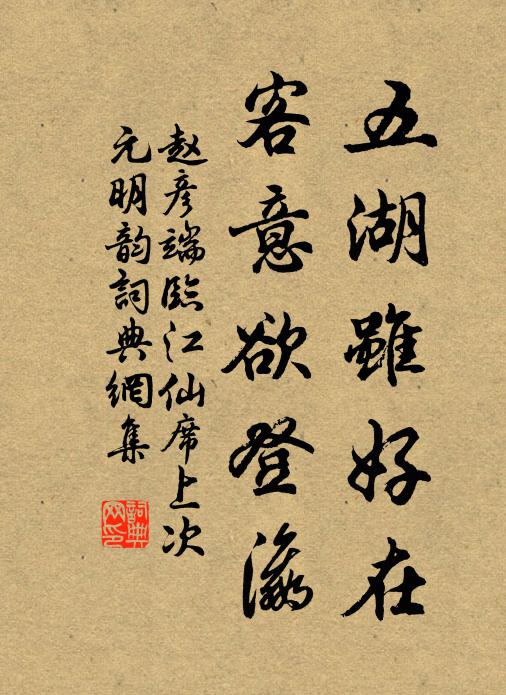 五湖雖好在
客意欲登瀛
赵彦端臨江仙席上次
元明韵詞典網集
詞典網印